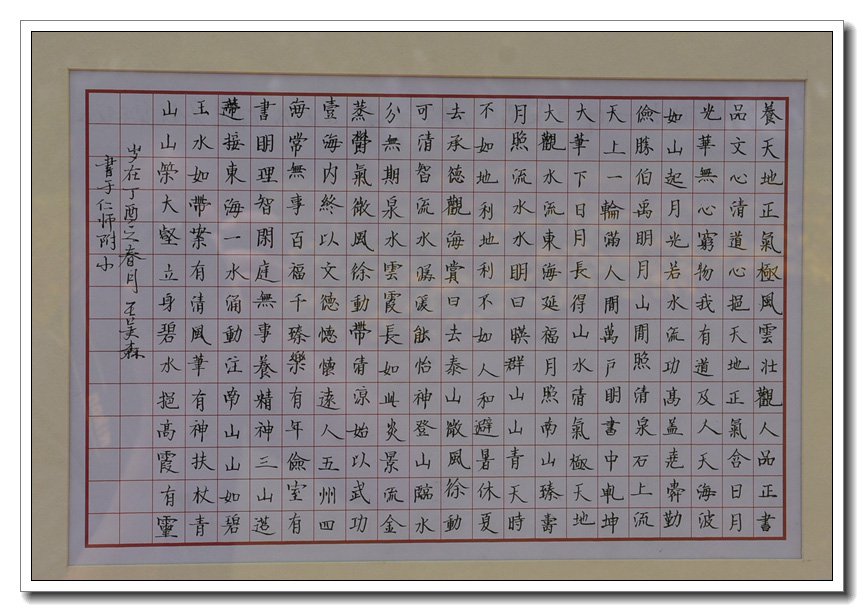 養天地正氣極風雲壯觀人品正書
品文心清道心挹天地正氣含日月
光華無心窮物我有道及人天海波
如山起月光若水流功高蓋堯舜勤
儉勝伯禹明月山間照清泉石上流
天上一輪滿人間萬戶明書中乹坤
大華下日月長得山水清氣極天地
大觀水流東海延福月照南山臻壽
月照流水水明曰暎群山山青天時
不如地利地利不如人和避暑休夏
去承德觀海賞曰去泰山微風徐動
可清智流水潺湲能怡神登山臨水
分無期泉水雲霞長如此炎景流金
蒸鬱氣微風徐動帶清涼始以武功
壹海内終以文德德懷遠人五州四
海常無事百福千臻樂有年儉室有
書明理智閑庭無事養精神三山
接東海一水涌動注南山山如碧
玉水如帶縈有清風筆有神扶杖青
山山榮大壑立身碧水挹高霞有靈
岁在丁酉之春月 王美森
書于仁师附小